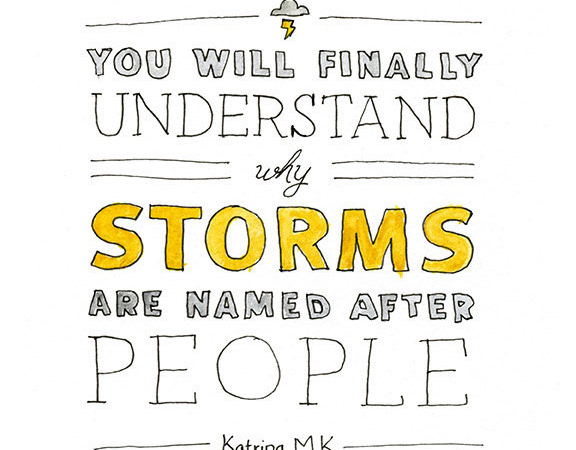 YOU WILL FINALLY
UNDERSTAND
why
STORMS
ARE NAMED AFTER
PEOPLE
Katrina M.K